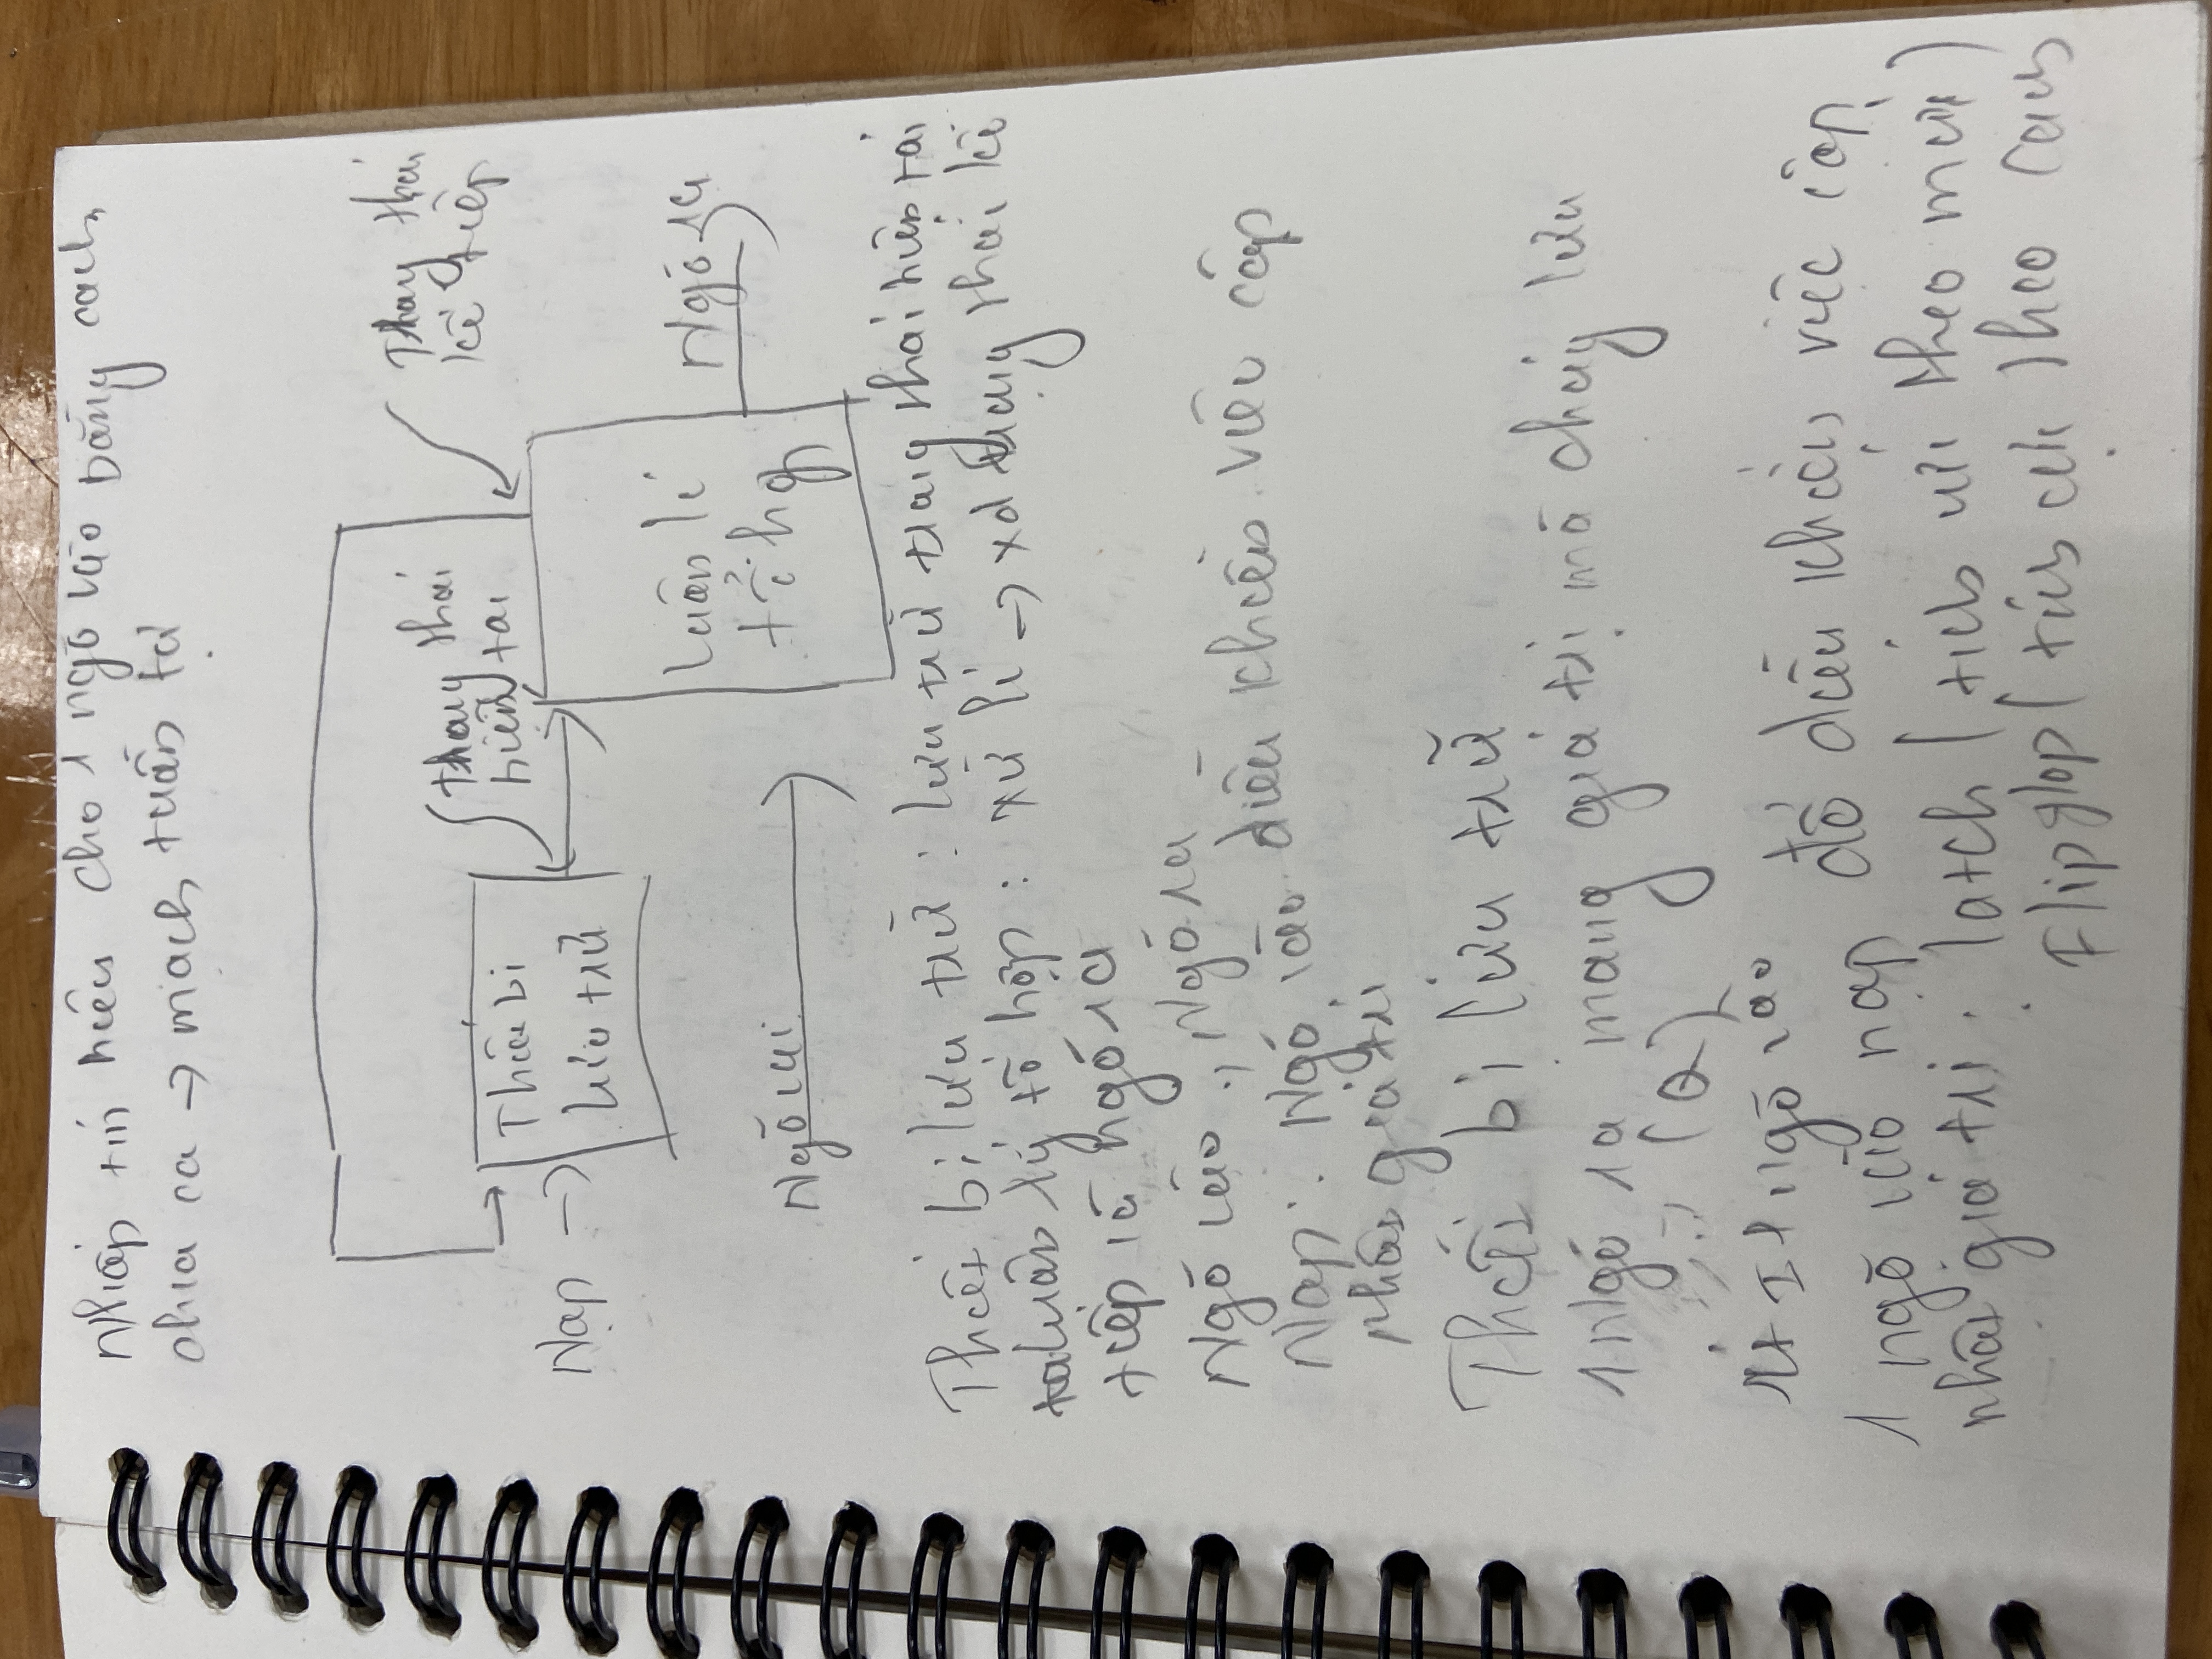 Nhập tín hiệu cho 1 ngõ vào bằng cách
chia ca → mạch tuần tự
Trạng thái
kế tiếp
trạng thái
hiện tại
Thiết bị
lưu trữ
Nạp →
Luận lí
tổ hợp
Ngõ ra
Ngõ vào
Thiết bị lưu trữ : lưu trữ trạng thái hiện tại
Luận lý tổ hợp : xử lí → xđ trạng thái kế
tiếp và ngõ ra
Ngõ vào , Ngõ ra
Nạp : Ngõ vào điều khiển việc cập
nhật giá trị
Thiết bị lưu trữ
1 Ngõ ra mang giá trị mà chúng lưu
(Q)
ít 1 ngõ vào
1 ngõ vào nạp để điều khiển việc cập
nhật giá trị : latch (tích cực theo mức)
Flipflop (tích cực theo cạnh